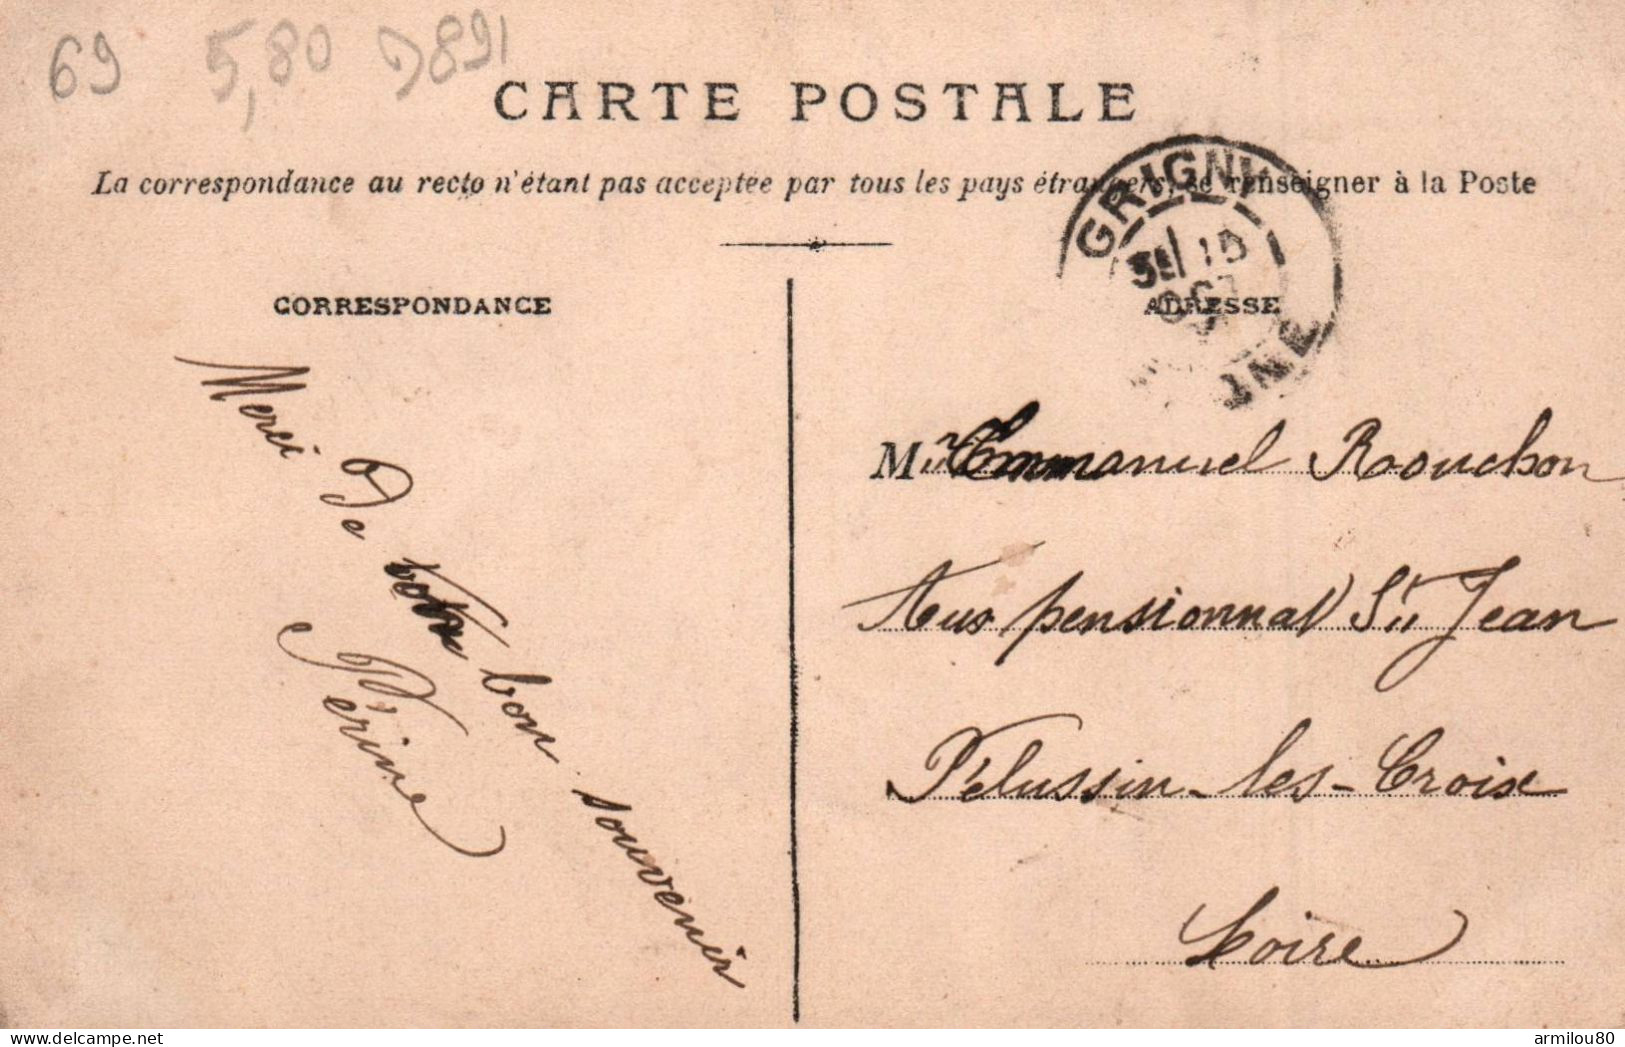 69 5,80 D891
CARTE POSTALE
La correspondance au recto n'étant pas acceptée par tous les pays étrangers, se renseigner à la Poste
GRIGNY
CORRESPONDANCE
ADRESSE
Merci de votre bon souvenir
Périne
Mr Emmanuel Rouchon
Aus pensionnat St Jean
Pélussin-les-Croix
Loire
delcampe.net
armilou80